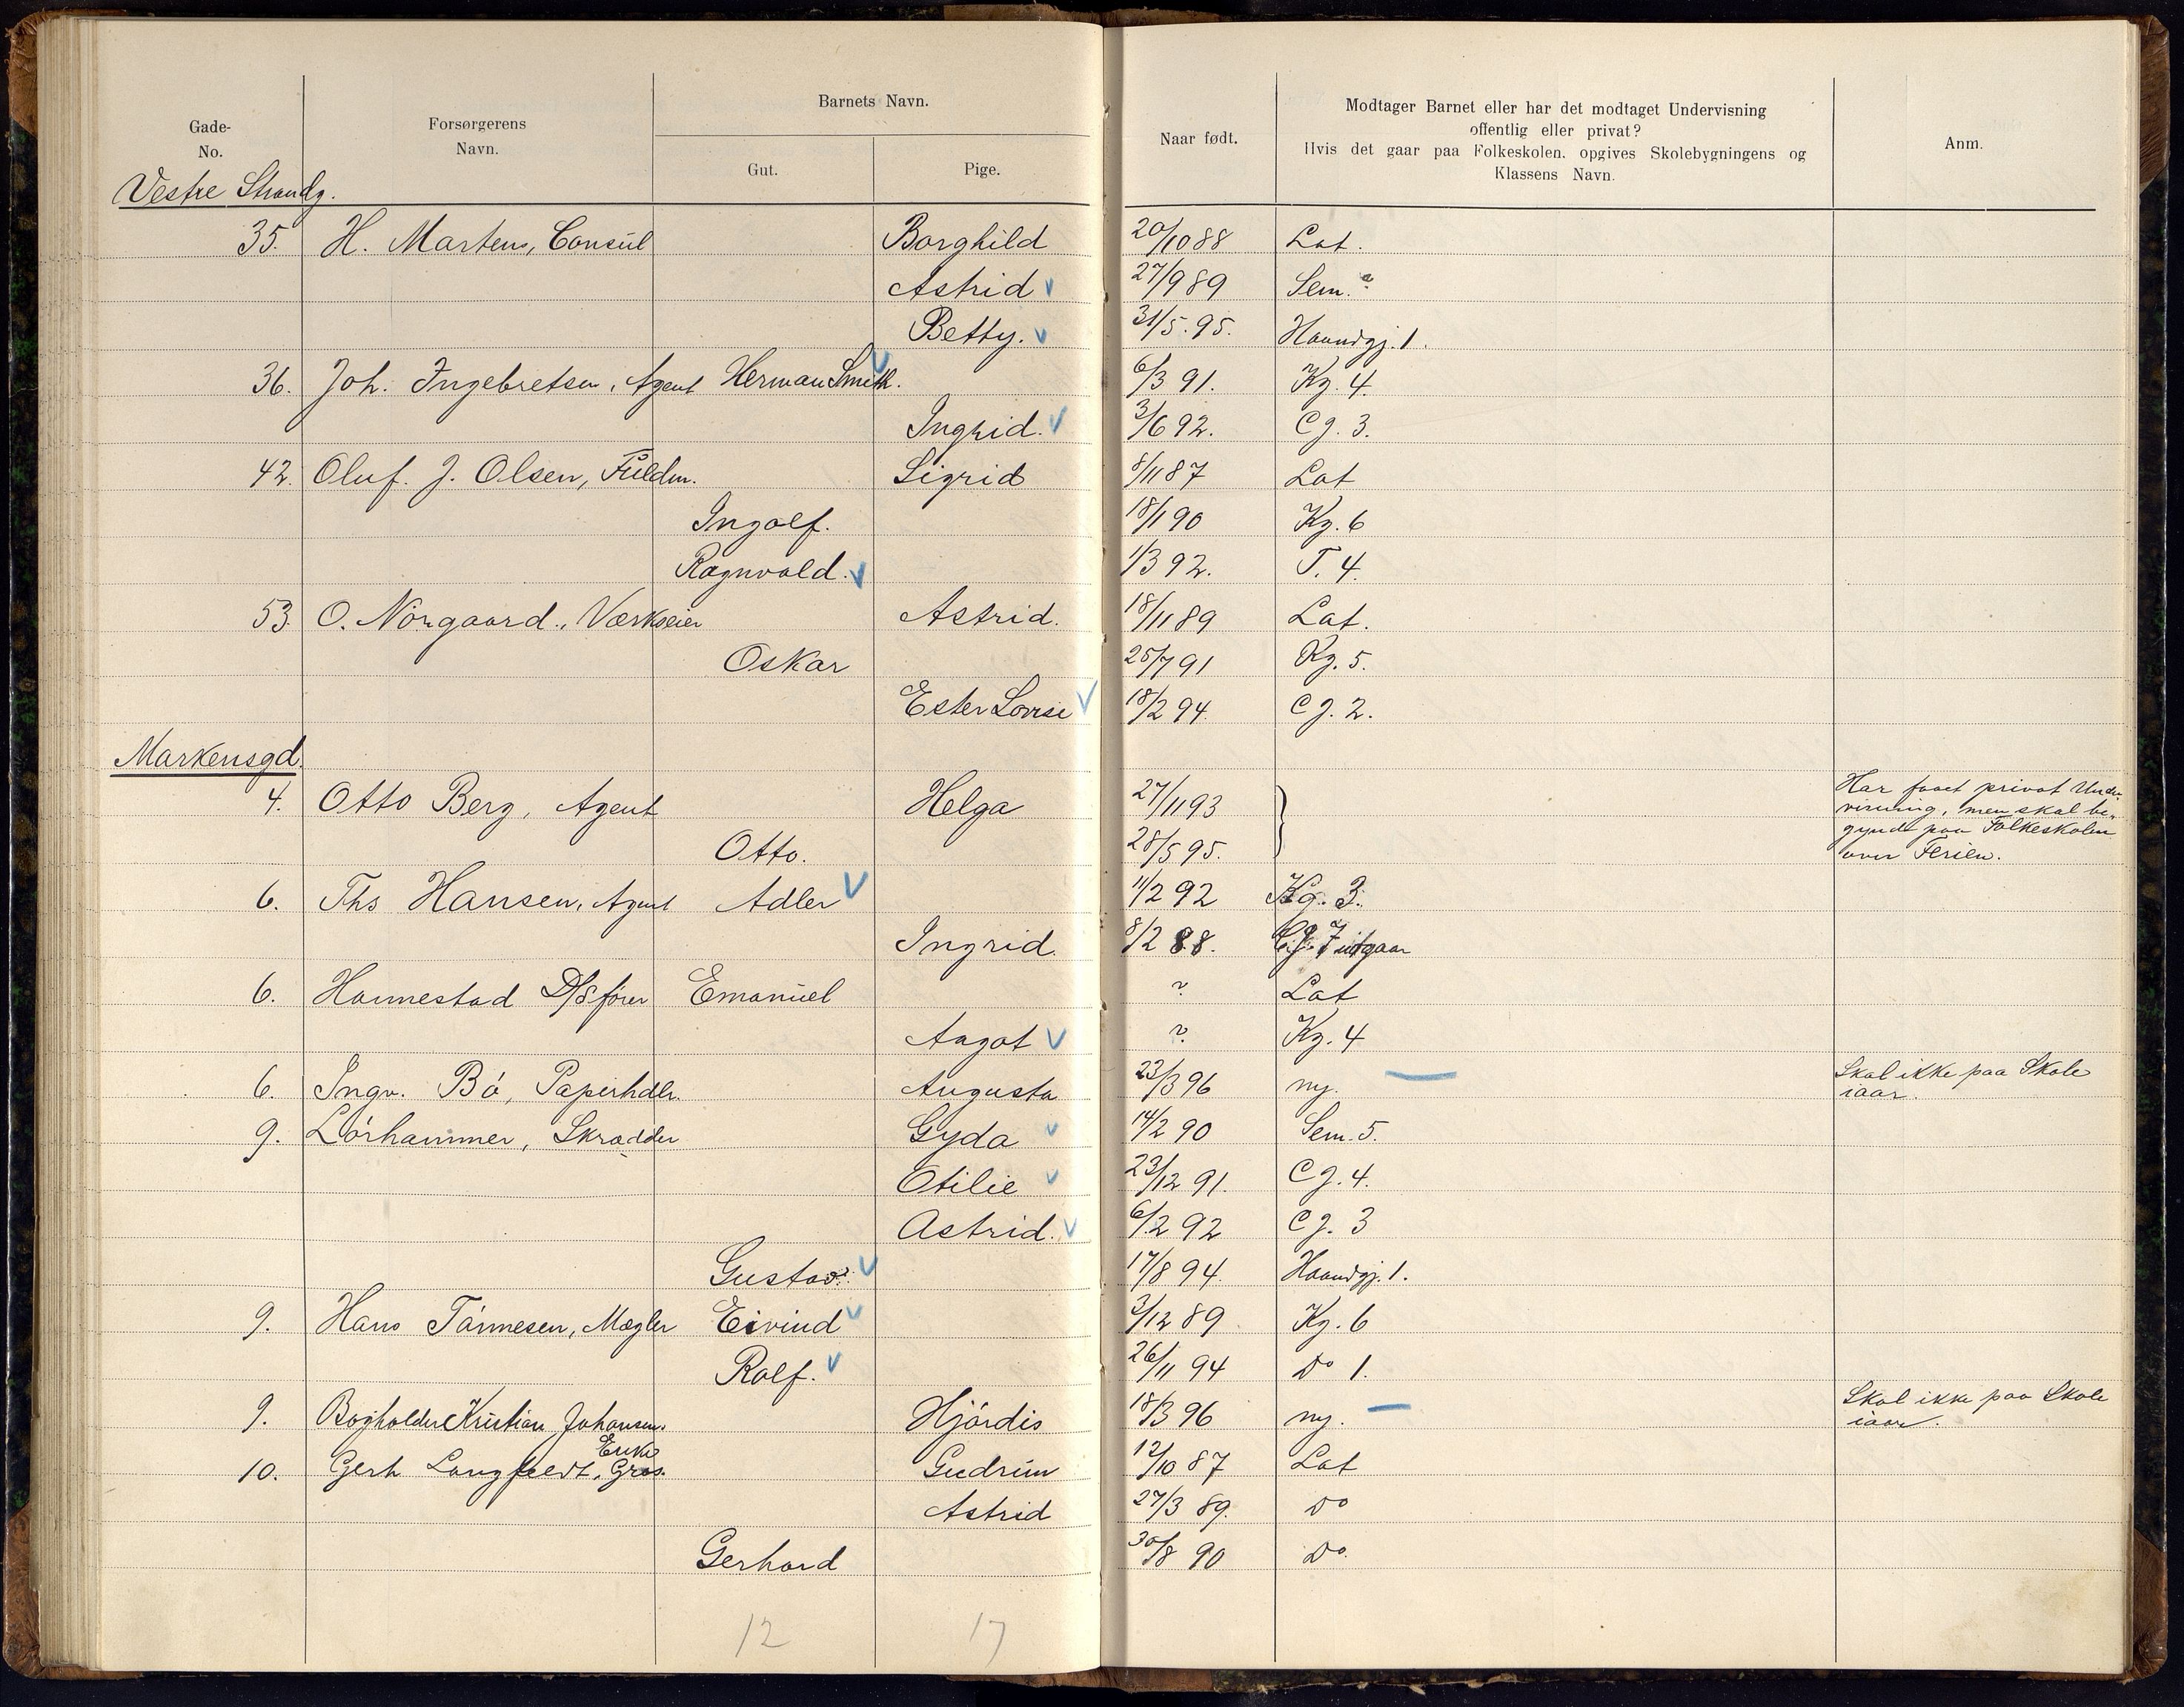 Gade-
No.
Forsørgerens
Navn.
Barnets Navn.
Gut.
Pige.
Naar født.
Modtager Barnet eller har det modtaget Undervisning
offentlig eller privat?
Hvis det gaar paa Folkeskolen. opgives Skolebygningens og
Klassens Navn.
Anm.
Vestre Strandg.
35. H. Martens, Consul Borghild 20/10 88 Lat.
Astrid 27/9 89 Sem.
Betty. 31/5. 95. Haandgj. 1.
36. Joh. Ingebretsen, Agent Herman Smith. 6/3 91. Kg. 4.
Ingrid. 3/6 92. Cg. 3.
42. Oluf. J. Olsen, Fuldm. Sigrid 8/11 87 Lat
Ingolf. 18/1 90 Kg. 6
Ragnvald. 1/3 92. T. 4.
53. O. Nörgaard., Værkseier Astrid. 18/11 89 Lat.
Oskar 25/7 91 Kg. 5.
Ester Lovise 18/2 94. Cg. 2.
Markensgd.
4. Otto Berg, Agent Helga 27/11 93 Har faaet privat Under-
visning, men skal be-
gynde paa Folkeskolen
over Ferien.
Otto. 28/5 95.
6. Ths Hansen, Agent Adler 11/2 92 Kg. 3.
Ingrid. 8/2 88. Cg. 7 udgaar
6. Hannestad D/S fører Emanuel ? Lat
Aagot ? Kg. 4
6. Ingv. Bö, Papirhdlr. Augusta 23/3 96 ny. Skal ikke paa Skole
iaar.
9. Lörhammer, Skrædder Gyda 14/2 90 Sem. 5.
Otilie 23/12 91. Cg. 4.
Astrid. 6/2 92 Cg. 3
Gustav. 17/8 94. Haandgj. 1.
9. Hans Tönnesen, Mægler Eivind 3/12 89 Kg. 6
Rolf. 26/11 94 Do 1.
9. Bogholder Kristian Johansen. Hjördis 18/3 96 ny. Skal ikke paa Skole
iaar.
10. Gerh Langfeldt, Gros. Enke Gudrun 12/10 87 Lat
Astrid 27/3 89. Do
Gerhard 30/8 90 Do.
12 17